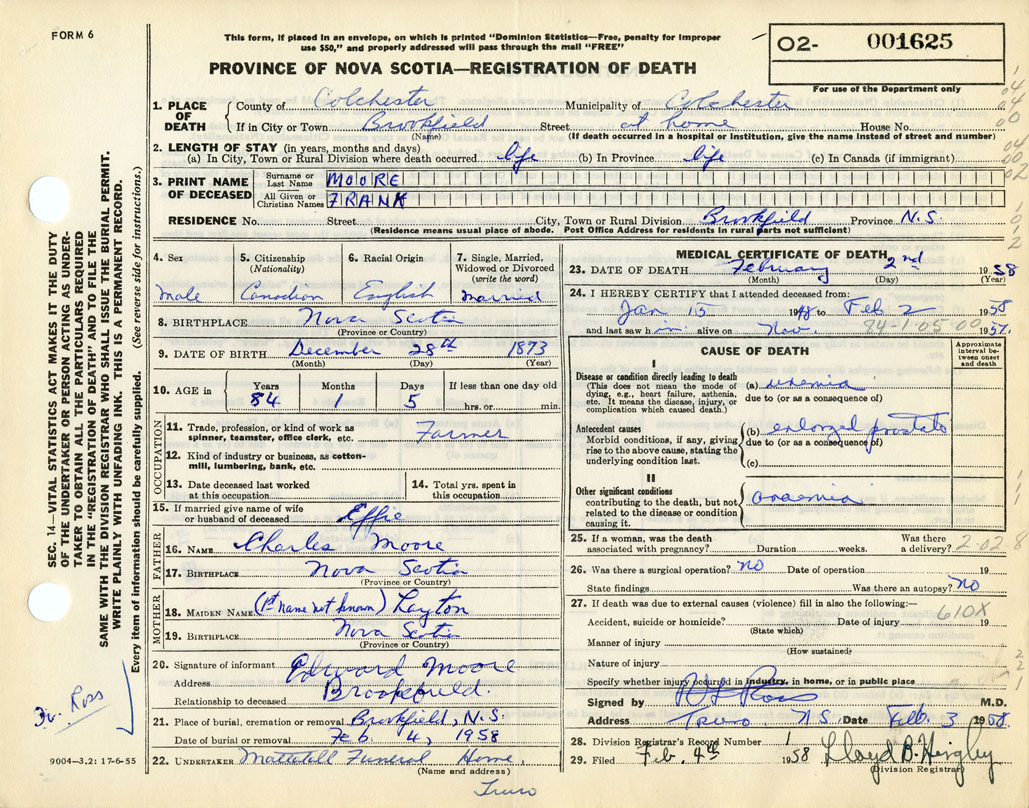 FORM 6
This form, if placed in an envelope, on which is printed "Dominion Statistics—Free, penalty for improper
use $50," and properly addressed will pass through the mail "FREE"
PROVINCE OF NOVA SCOTIA—REGISTRATION OF DEATH
O2- 001625
For use of the Department only
1. PLACE OF DEATH County of Colchester Municipality of Colchester
If in City or Town Brookfield Street at home House No.
(Name) (If death occurred in a hospital or institution, give the name instead of street and number)
2. LENGTH OF STAY (in years, months and days)
(a) In City, Town or Rural Division where death occurred life (b) In Province life (c) In Canada (if immigrant)
3. PRINT NAME OF DECEASED Surname or Last Name MOORE
All Given or Christian Names FRANK
RESIDENCE No. Street City, Town or Rural Division Brookfield Province N.S.
(Residence means usual place of abode. Post Office Address for residents in rural parts not sufficient)
4. Sex 5. Citizenship (Nationality) 6. Racial Origin 7. Single, Married, Widowed or Divorced (write the word)
Male Canadian English Married
8. BIRTHPLACE Nova Scotia
(Province or Country)
9. DATE OF BIRTH December 28th 1873
(Month) (Day) (Year)
10. AGE in Years Months Days If less than one day old
84 1 5 hrs. or min.
OCCUPATION
11. Trade, profession, or kind of work as spinner, teamster, office clerk, etc. Farmer
12. Kind of industry or business, as cotton-mill, lumbering, bank, etc.
13. Date deceased last worked at this occupation 14. Total yrs. spent in this occupation
15. If married give name of wife or husband of deceased Effie
FATHER
16. NAME Charles Moore
17. BIRTHPLACE Nova Scotia
(Province or Country)
MOTHER
18. MAIDEN NAME (1st name not known) Layton
19. BIRTHPLACE Nova Scotia
(Province or Country)
20. Signature of informant Edward Moore
Address Brookfield.
Relationship to deceased
21. Place of burial, cremation or removal Brookfield, N.S.
Date of burial or removal Feb. 4, 1958
22. UNDERTAKER Mattatall Funeral Home.
(Name and address)
Truro
MEDICAL CERTIFICATE OF DEATH
23. DATE OF DEATH February 2nd 1958
(Month) (Day) (Year)
24. I HEREBY CERTIFY that I attended deceased from:
Jan 15 1948 to Feb 2 1958
and last saw him alive on Nov. 1957.
94-1-05-00
CAUSE OF DEATH
Approximate interval between onset and death
I
Disease or condition directly leading to death (a) uremia
(This does not mean the mode of dying, e.g., heart failure, asthenia, etc. It means the disease, injury, or complication which caused death.)
due to (or as a consequence of)
Antecedent causes (b) enlarged prostate
Morbid conditions, if any, giving rise to the above cause, stating the underlying condition last.
due to (or as a consequence of)
(c)
II
Other significant conditions anaemia
contributing to the death, but not related to the disease or condition causing it.
25. If a woman, was the death associated with pregnancy? Duration weeks. Was there a delivery?
2-02-8
26. Was there a surgical operation? NO Date of operation 19
State findings Was there an autopsy? NO
27. If death was due to external causes (violence) fill in also the following:—
610X
Accident, suicide or homicide? Date of injury 19
(State which)
Manner of injury
(How sustained)
Nature of injury
Specify whether injury occurred in industry, in home, or in public place
Signed by Ross M.D.
Address Truro, N.S. Date Feb. 3 1958.
28. Division Registrar's Record Number 1
29. Filed Feb. 4th 1958 Lloyd B.
(Division Registrar)
SEC. 14—VITAL STATISTICS ACT MAKES IT THE DUTY
OF THE UNDERTAKER OR PERSON ACTING AS UNDER-
TAKER TO OBTAIN ALL THE PARTICULARS REQUIRED
IN THE "REGISTRATION OF DEATH" AND TO FILE THE
SAME WITH THE DIVISION REGISTRAR WHO SHALL ISSUE THE BURIAL PERMIT.
WRITE PLAINLY WITH UNFADING INK. THIS IS A PERMANENT RECORD.
Every item of information should be carefully supplied. (See reverse side for instructions.)
Dr. Ross
9004—3.2: 17-6-55